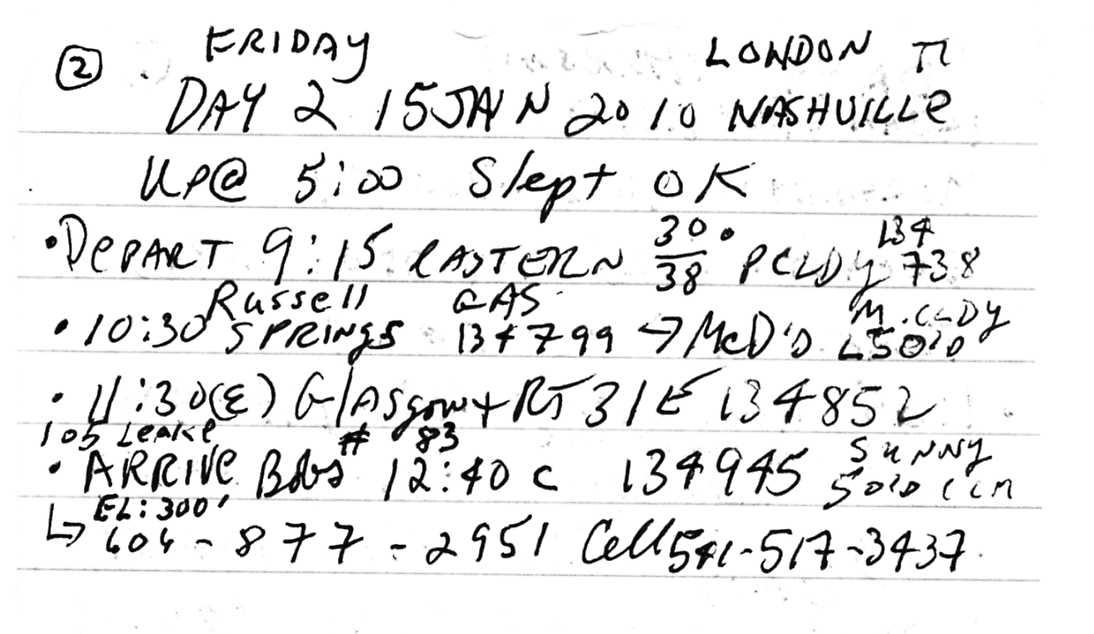 ② FRIDAY LONDON TL
DAY 2 15 JAN 2010 NASHVILLE
UP@ 5:00 Slept OK
• DEPART 9:15 EASTERN 30°/38 PCLDY 134 738
Russell GAS M.CLDY
• 10:30 SPRINGS 134799 → McD'S 50°
• 11:30(E) Glasgow + RT 31E 134852
105 Leake # 83 SUNNY
• ARRIVE Bobs 12:40 C 134945 50°
EL: 300'
↳ 604-877-2951 Cell 541-517-3437